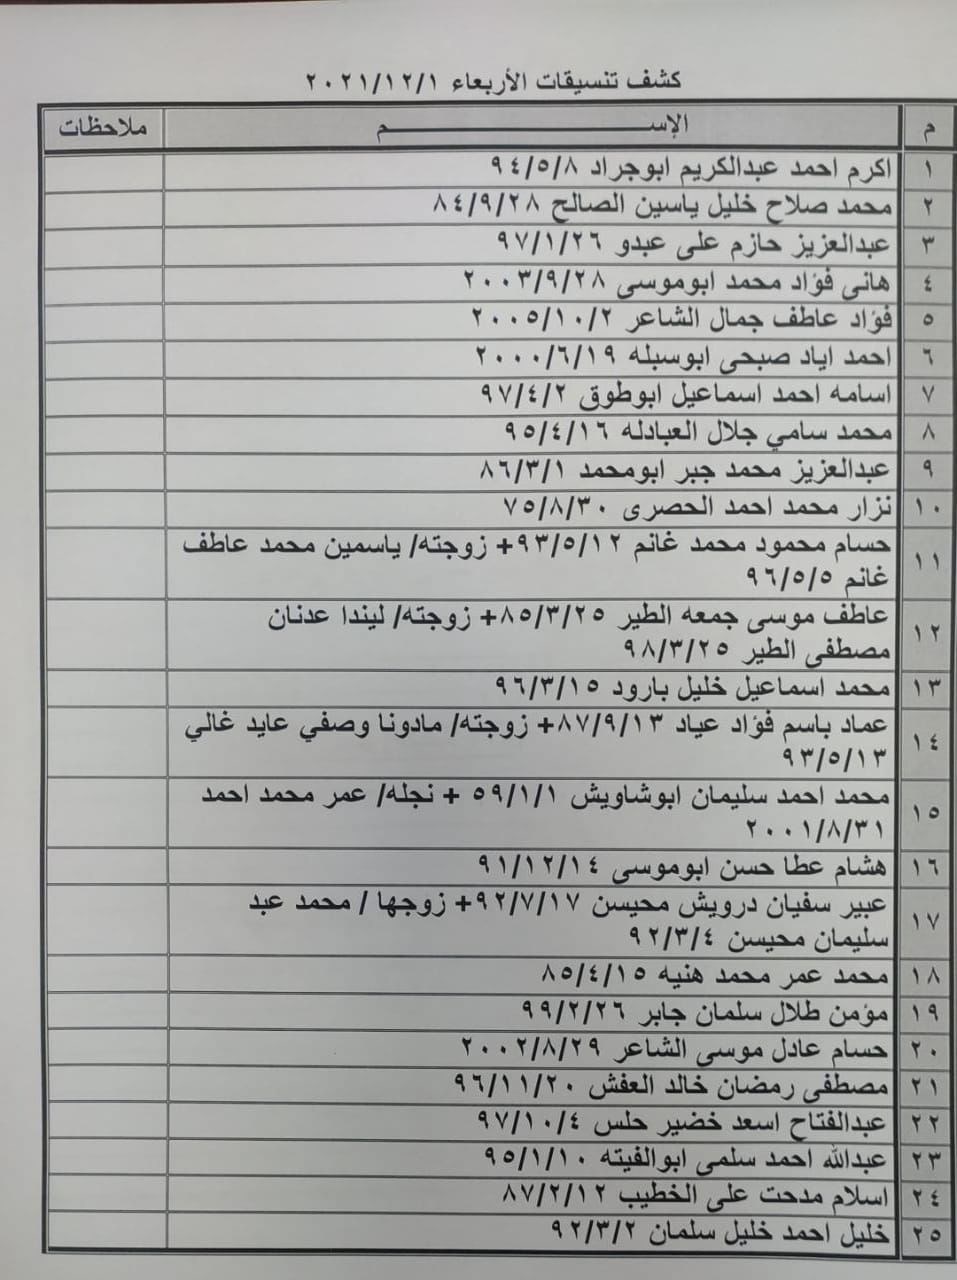 كشف تنسيقات الأربعاء ٢٠٢١/١٢/١
م الإســـــــــــــم ملاحظات
١ اكرم احمد عبدالكريم ابوجراد ٩٤/٥/٨
٢ محمد صلاح خليل ياسين الصالح ٨٤/٩/٢٨
٣ عبدالعزيز حازم على عبدو ٩٧/١/٢٦
٤ هانى فؤاد محمد ابوموسى ٢٠٠٣/٩/٢٨
٥ فؤاد عاطف جمال الشاعر ٢٠٠٥/١٠/٢
٦ احمد اياد صبحى ابوسبله ٢٠٠٠/٦/١٩
٧ اسامه احمد اسماعيل ابوطوق ٩٧/٤/٢
٨ محمد سامي جلال العبادله ٩٥/٤/١٦
٩ عبدالعزيز محمد جبر ابومحمد ٨٦/٣/١
١٠ نزار محمد احمد الحصرى ٧٥/٨/٣٠
١١ حسام محمود محمد غانم ٩٣/٥/١٢+ زوجته/ ياسمين محمد عاطف
غانم ٩٦/٥/٥
١٢ عاطف موسى جمعه الطير ٨٥/٣/٢٥+ زوجته/ ليندا عدنان
مصطفى الطير ٩٨/٣/٢٥
١٣ محمد اسماعيل خليل بارود ٩٦/٣/١٥
١٤ عماد باسم فؤاد عياد ٨٧/٩/١٣+ زوجته/ مادونا وصفي عايد غالي
٩٣/٥/١٣
١٥ محمد احمد سليمان ابوشاويش ٥٩/١/١ + نجله/ عمر محمد احمد
٢٠٠١/٨/٣١
١٦ هشام عطا حسن ابوموسى ٩١/١٢/١٤
١٧ عبير سفيان درويش محيسن ٩٢/٧/١٧+ زوجها / محمد عبد
سليمان محيسن ٩٢/٣/٤
١٨ محمد عمر محمد هنيه ٨٥/٤/١٥
١٩ مؤمن طلال سلمان جابر ٩٩/٢/٢٦
٢٠ حسام عادل موسى الشاعر ٢٠٠٢/٨/٢٩
٢١ مصطفى رمضان خالد العفش ٩٦/١١/٢٠
٢٢ عبدالفتاح اسعد خضير حلس ٩٧/١٠/٤
٢٣ عبدالله احمد سلمى ابوالفيته ٩٥/١/١٠
٢٤ اسلام مدحت على الخطيب ٨٧/٢/١٢
٢٥ خليل احمد خليل سلمان ٩٢/٣/٢